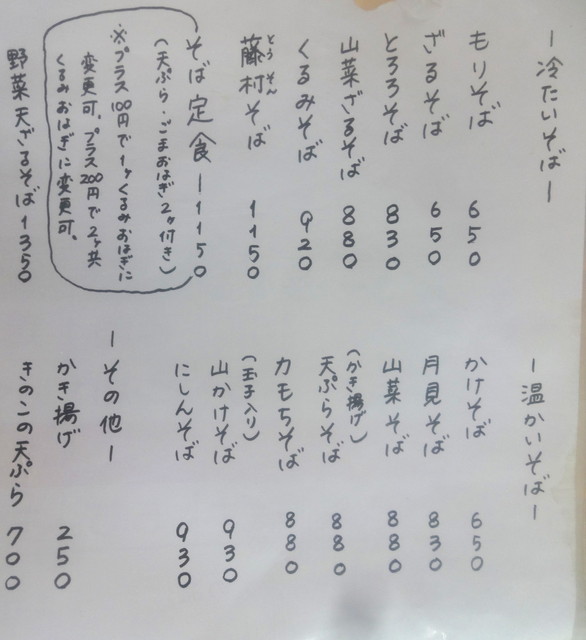 ー冷たいそばー
もりそば 650
ざるそば 650
とろろそば 830
山菜ざるそば 880
くるみそば 920
藤村そば 1150
とうそん
そば定食ー1150
(天ぷら・ごまおはぎ2ヶ付き)
※プラス100円で1ヶくるみおはぎに
変更可。プラス200円で2ヶ共
くるみおはぎに変更可。
野菜天ざるそば1350
ー温かいそばー
かけそば 650
月見そば 830
山菜そば 880
(かき揚げ)
天ぷらそば 880
カモちそば 880
(玉子入り)
山かけそば 930
にしんそば 930
ーその他ー
かき揚げ 250
きのこの天ぷら 700